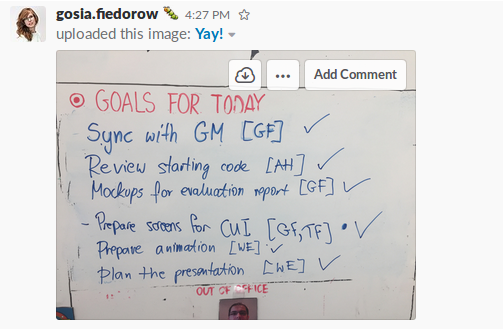 gosia.fiedorow 4:27 PM
uploaded this image: Yay!
Add Comment
GOALS FOR TODAY
Sync with GM [GF] ✓
Review starting code [AH] ✓
Mockups for evaluation report [GF] ✓
- Prepare screens for CUI [GF,TF] • ✓
Prepare animation [WE] ✓
Plan the presentation [WE] ✓
OUT OF OFFICE